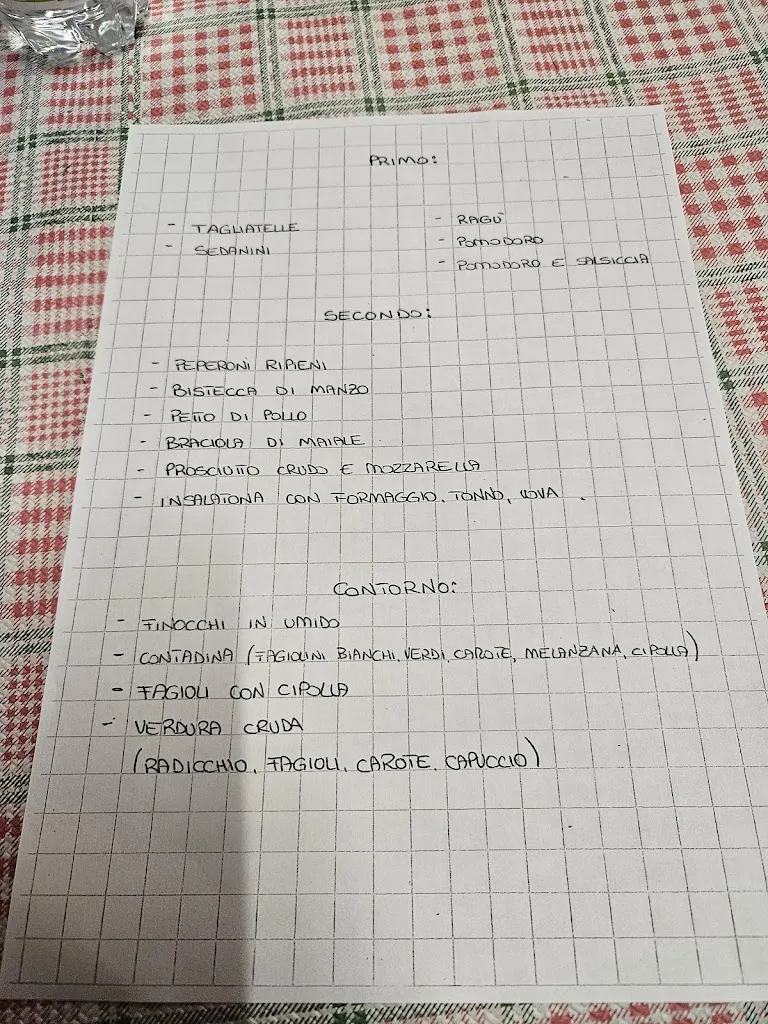 PRIMO:
- TAGLIATELLE
- SEDANINI
- RAGÙ
- POMODORO
- POMODORO E SALSICCIA
SECONDO:
- PEPERONI RIPIENI
- BISTECCA DI MANZO
- PETTO DI POLLO
- BRACIOLA DI MAIALE
- PROSCIUTTO CRUDO E MOZZARELLA
- INSALATONA CON FORMAGGIO, TONNO, UOVA.
CONTORNO:
- FINOCCHI IN UMIDO
- CONTADINA (FAGIOLINI BIANCHI, VERDI, CAROTE, MELANZANA, CIPOLLA)
- FAGIOLI CON CIPOLLA
- VERDURA CRUDA
(RADICCHIO, FAGIOLI, CAROTE, CAPUCCIO)